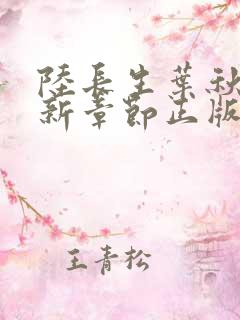 陸長生葉秋
新章節正版
王青松